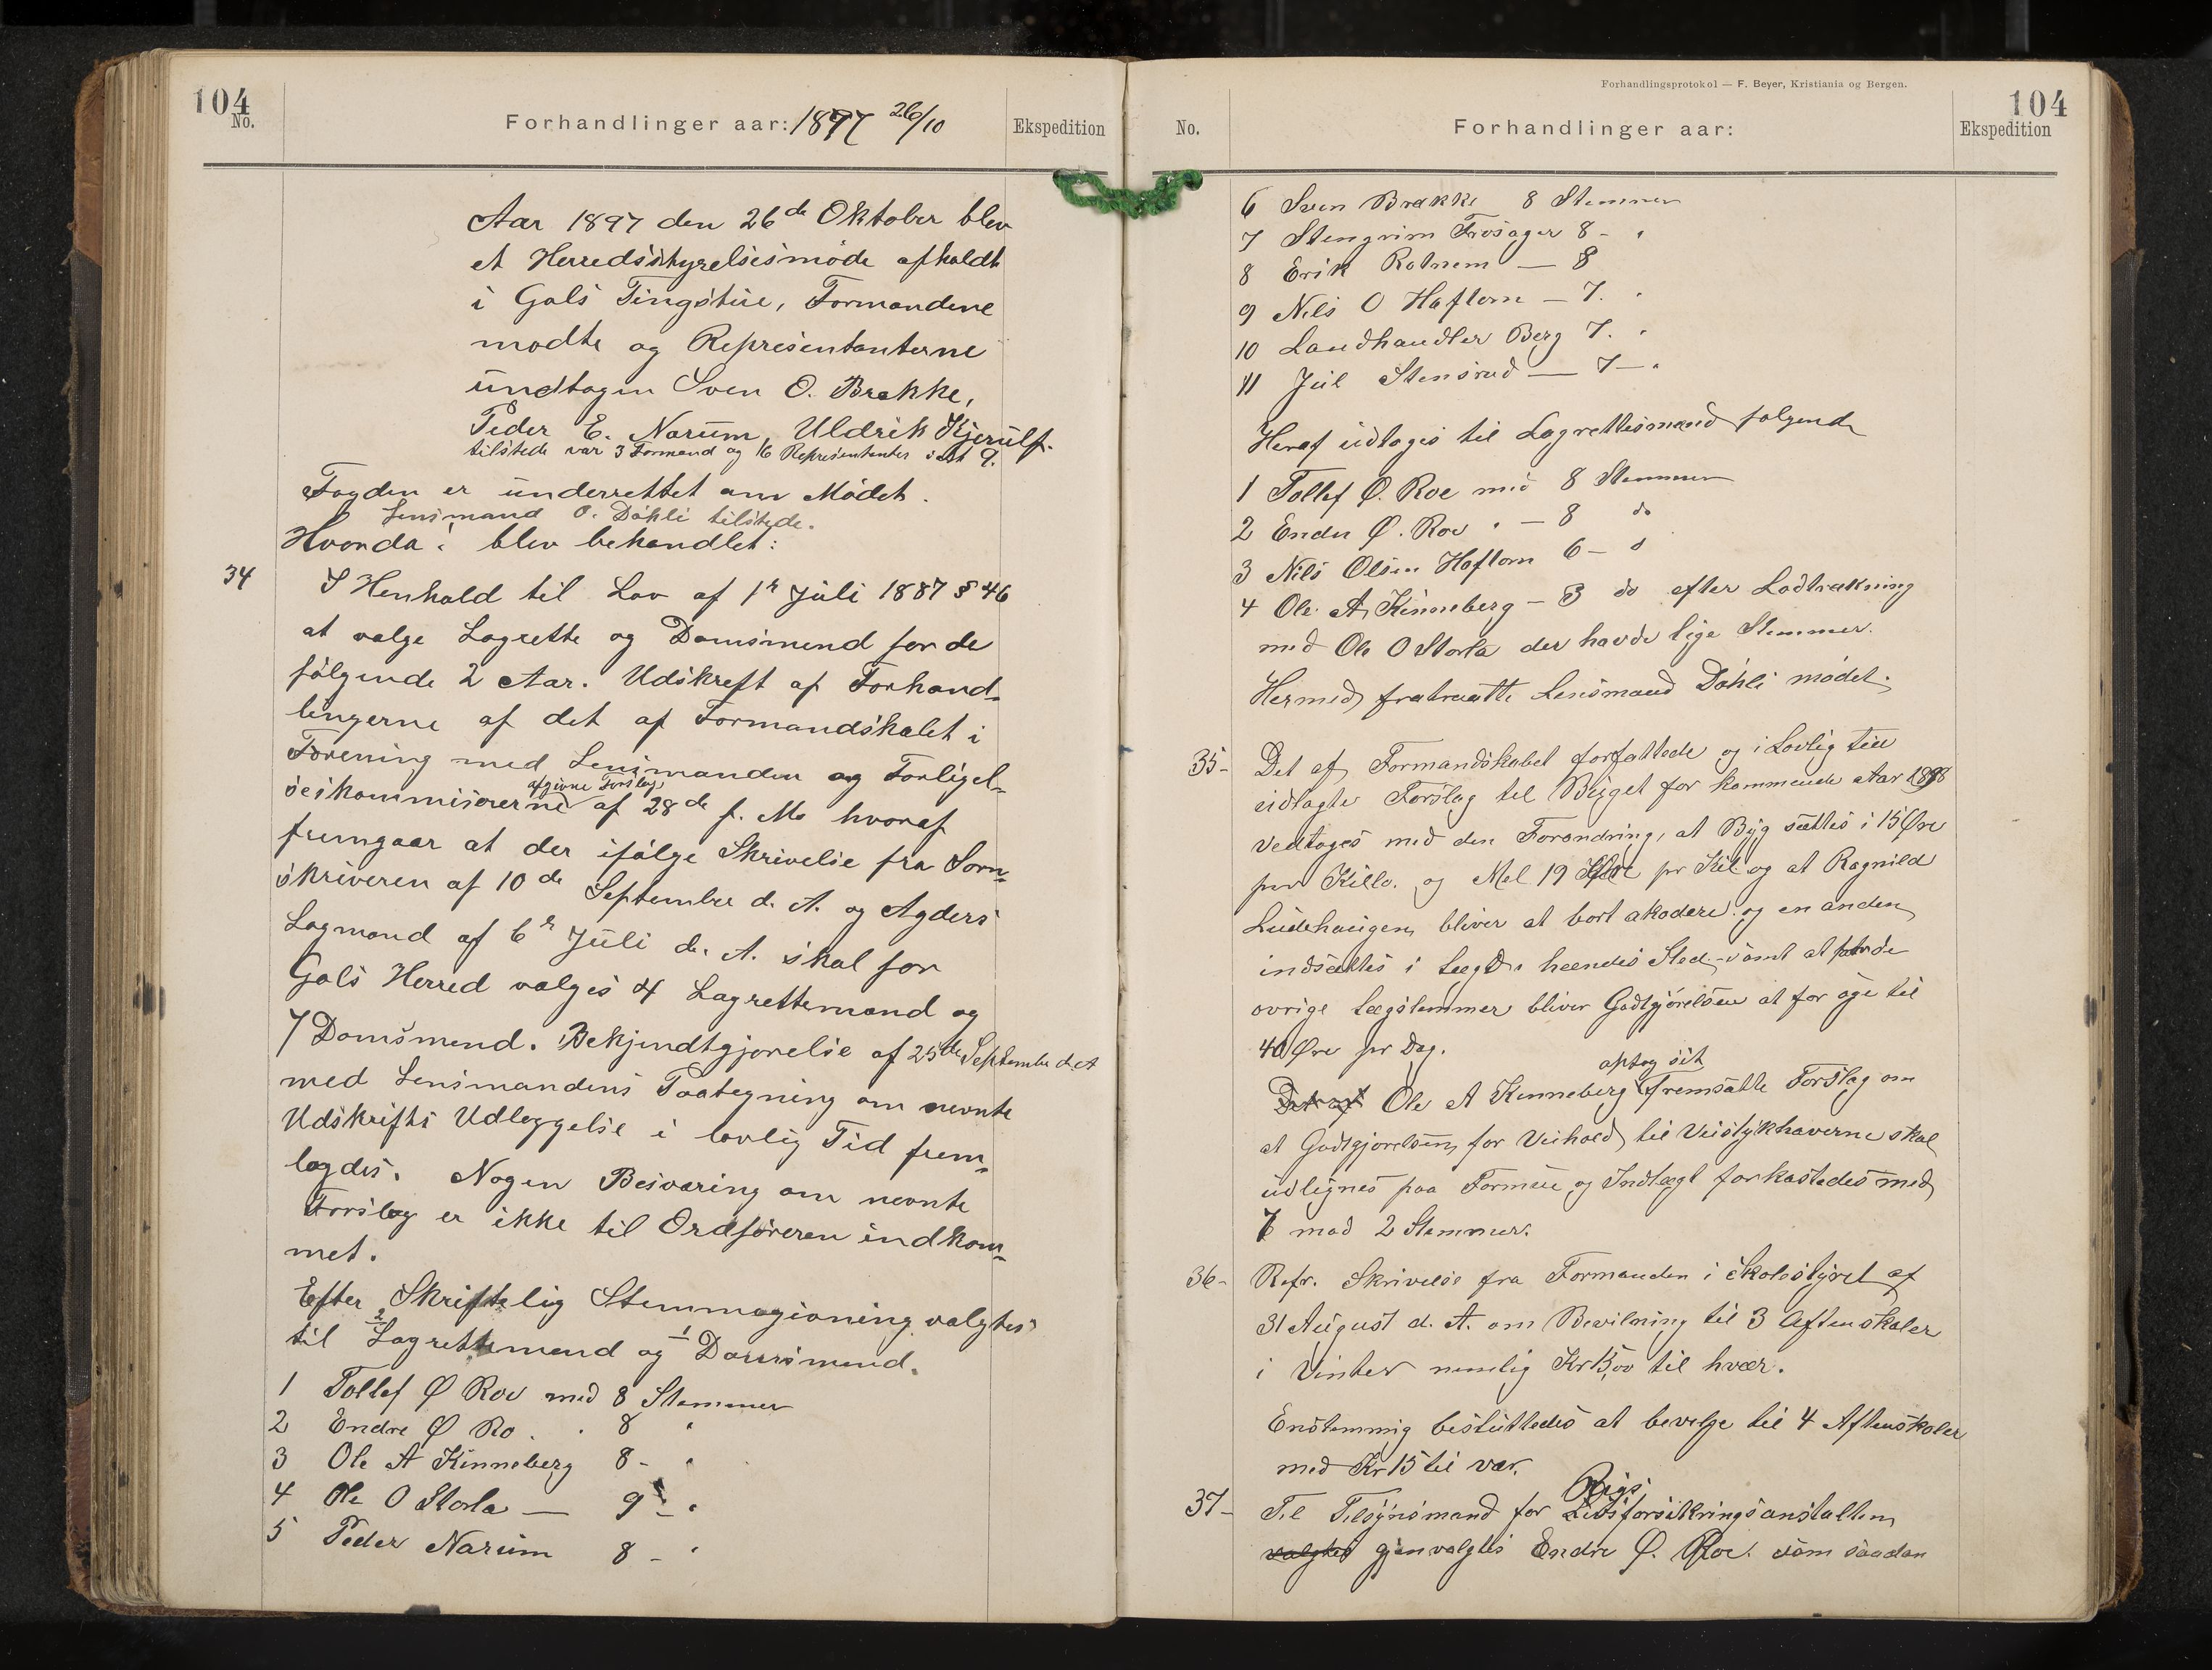 104
No.
Forhandlinger aar: 1897 26/10
Ekspedition
Aar 1897 den 26de Oktober blev
et Herredsstyrelsesmöde afholdt
i Gols Tingstue, Formændene
modte og Repræsentanterne
undtagen Sven O. Brække,
Peder E. Narum, Uldrik Kjerulf.
tilstede var 3 Formænd og 6 Repræsentanter ialt 9.
Fogden er underrettet om Mödet.
Lensmand O. Döhli tilstede.
Hvorda: blev behandlet:
34
I Henhold til Lov af 1r Juli 1887 § 46
at valge Lagrette og Domsmend for de
fölgende 2 Aar. Udskreft af Forhand-
lingerne af det af Formandskabet i
Forening med Lensmanden og Forligel-
afgivne Forslag
seskommisererne af 28de f. M. hvoraf
fremgaar at der ifölge Skrivelse fra Soren-
skriveren af 10de September d. A. og Agders
Lagmand af 6r Juli d. A. skal for
Gols Herred valges 4 Lagrettemænd og
7 Domsmend. Bekjendtgjorelse af 25de September d. A
med Lensmandens Paategning om nevnte
Udskrifts Udleggelse i lovlig Tid frem-
lagdes. Nogen Besværing om nevnte
Forslag er ikke til Ordföreren indkom-
met.
Efter Skriftelig Stemmegivning valgtes
til 2 Lagrettemend og 1 Domsmend.
1 Tollef Ø Roe med 8 Stemmer
2 Endre Ø Ro . . 8 "
3 Ole A Kinneberg 8 - "
4 Ole O Storla — 9 - "
5 Peder Narum 8 - "
Forhandlingsprotokol — F. Beyer, Kristiania og Bergen.
104
No.
Forhandlinger aar:
Ekspedition
6 Sven Brække 8 Stemmer
7 Stengrim Frosager 8 - "
8 Erik Rotnem — 8
9 Nils O Haftorn — 7. "
10 Landhandler Berg 7. "
11 Juel Stensrud — 7 - "
Heraf udtoges til Lagrettesmænd folgende
1 Tollef Ø. Roe med 8 Stemmer
2 Endre Ø. Roe " - 8 do
3 Nils Olsen Haftorn 6 - d
4 Ole A, Kinneberg - 3 do efter Lodtrækning
med Ole O Storla der havde lige Stemmer.
Hermed fratraatte Lensmand Döhli mödet.
35-
Det af Formandskabet forfattede og i Lovlig tid
udlagte Forslag til Buget for kommende Aar 1898
vedtoges med den Forandring, at Byg sættes i 15 Øre
per Killo. og Mel 19 Øre pr Kil og at Ragnild
Ludehaugen bliver at bort akodere og en anden
indsættes i Lægd i hendes Sted - samt at for de
ovrige Lægslemmer bliver Godtgjörelsen at for öge til
40 Øre pr Dag.
optog sit
Det af Ole A Kinneberg fremsatte Forslag om
at Godtgjorelsen for Veihold til Veistykhaverne skal
udlignes paa Formue og Indtægt forkastedes med
7 mod 2 Stemmer.
36-
Refr. Skrivelse fra Formanden i Skolestyret af
31 August d. A. om Bevilgning til 3 Aftenskoler
i Vinter nemlig Kr 15,00 til hvær.
Enstemmig besluttedes at bevilge til 4 Aftenskoler
med Kr 15 til vær.
37-
Rigs
Til Tilsynsmand for Livsforsikringsanstalten
valgtes gjenvalgtes Endre Ø. Roe. som saadan